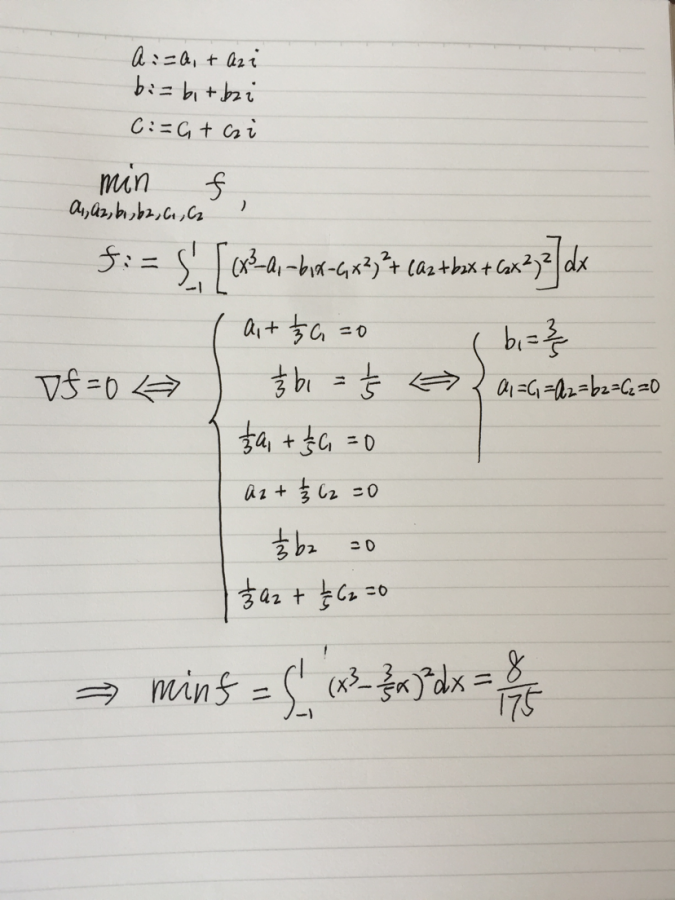 a:=a₁+a₂i
b:=b₁+b₂i
c:=c₁+c₂i
min f,
a₁,a₂,b₁,b₂,c₁,c₂
f:=∫₋₁¹[(x³-a₁-b₁x-c₁x²)²+(a₂+b₂x+c₂x²)²]dx
∇f=0 ⇔ { a₁+1/3c₁=0
1/3b₁=1/5
1/3a₁+1/5c₁=0
a₂+1/3c₂=0
1/3b₂=0
1/3a₂+1/5c₂=0
⇔ { b₁=3/5
a₁=c₁=a₂=b₂=c₂=0
⇒ minf=∫₋₁¹(x³-3/5x)²dx=8/175